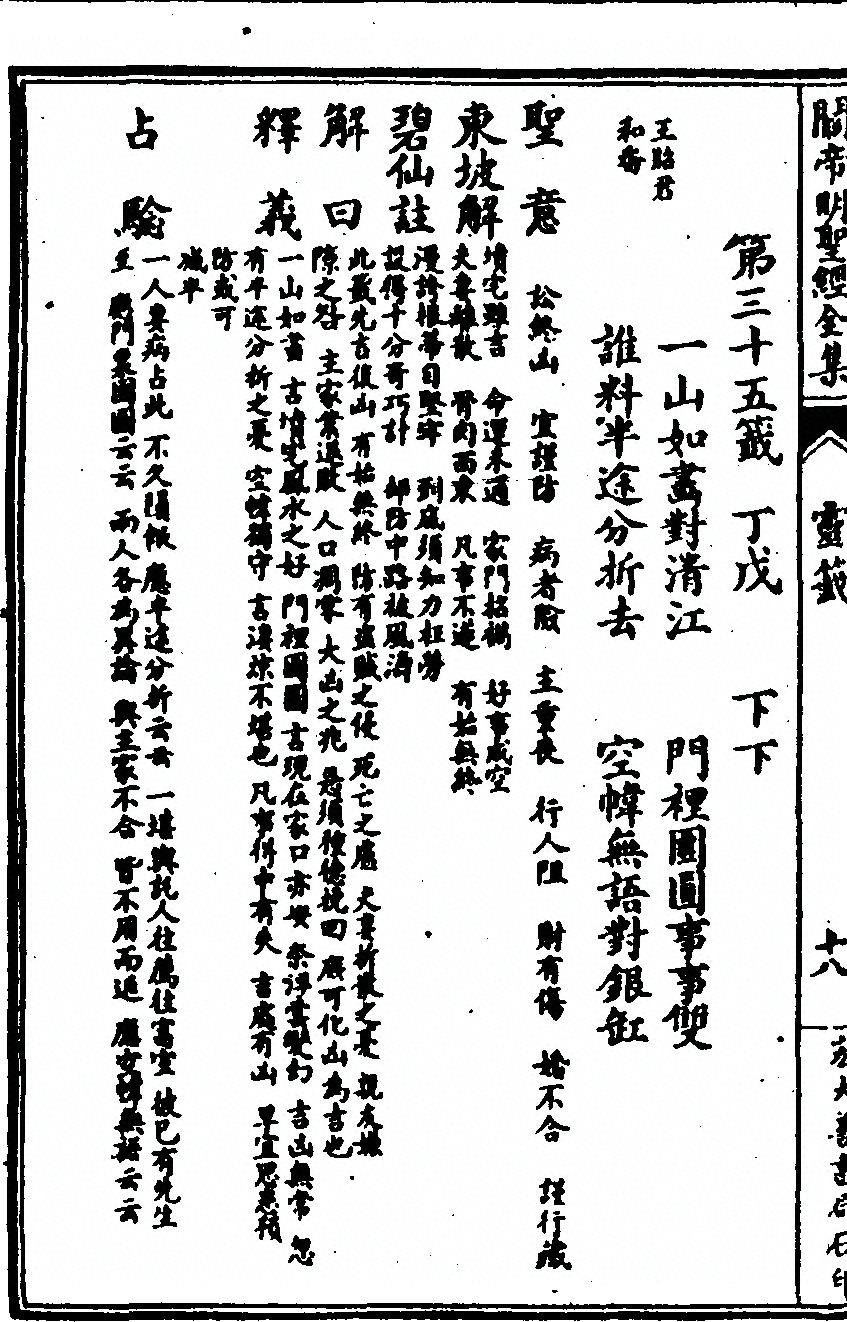 關帝明聖經全集
靈籤
十八
第三十五籤 丁戊 下下
王昭君
和番
一山如畫對清江 門裡團圓事事雙
誰料半途分折去 空幃無語對銀缸
聖意 訟終凶 宜謹防 病者險 主重喪 行人阻 財有傷 婚不合 謹行藏
東坡解 墳宅雖吉 命運未通 家門招禍 好事成空
夫妻離散 骨肉西東 凡事不遂 有始無終
碧仙註 漫誇根蒂自堅牢 到底須知力枉勞
設得千分奇巧計 却防中路被風濤
解曰 此籤先吉後凶 有始無終 防有盜賊之侵 死亡之慮 夫妻拆散之憂 親友嫌
隙之咎 主家業退敗 人口凋零 大凶之兆 急須積德挽回 庶可化凶為吉也
釋義 一山如畫 言墳宅風水之好 門裡團圓 言現在家口亦安 奈浮雲變幻 吉凶無常 忽
有半途分折之憂 空幃獨守 言淒涼不堪也 凡事得中有失 吉處有凶 早宜思患預
防或可
減半
占驗 一人妻病占此 不久隕 應半途分折云云 一堪輿託人往薦往富室 彼已有先生
至 應門裏團圓云云 兩人各為異論 與主家不合 皆不用而返 應空幃無語云云